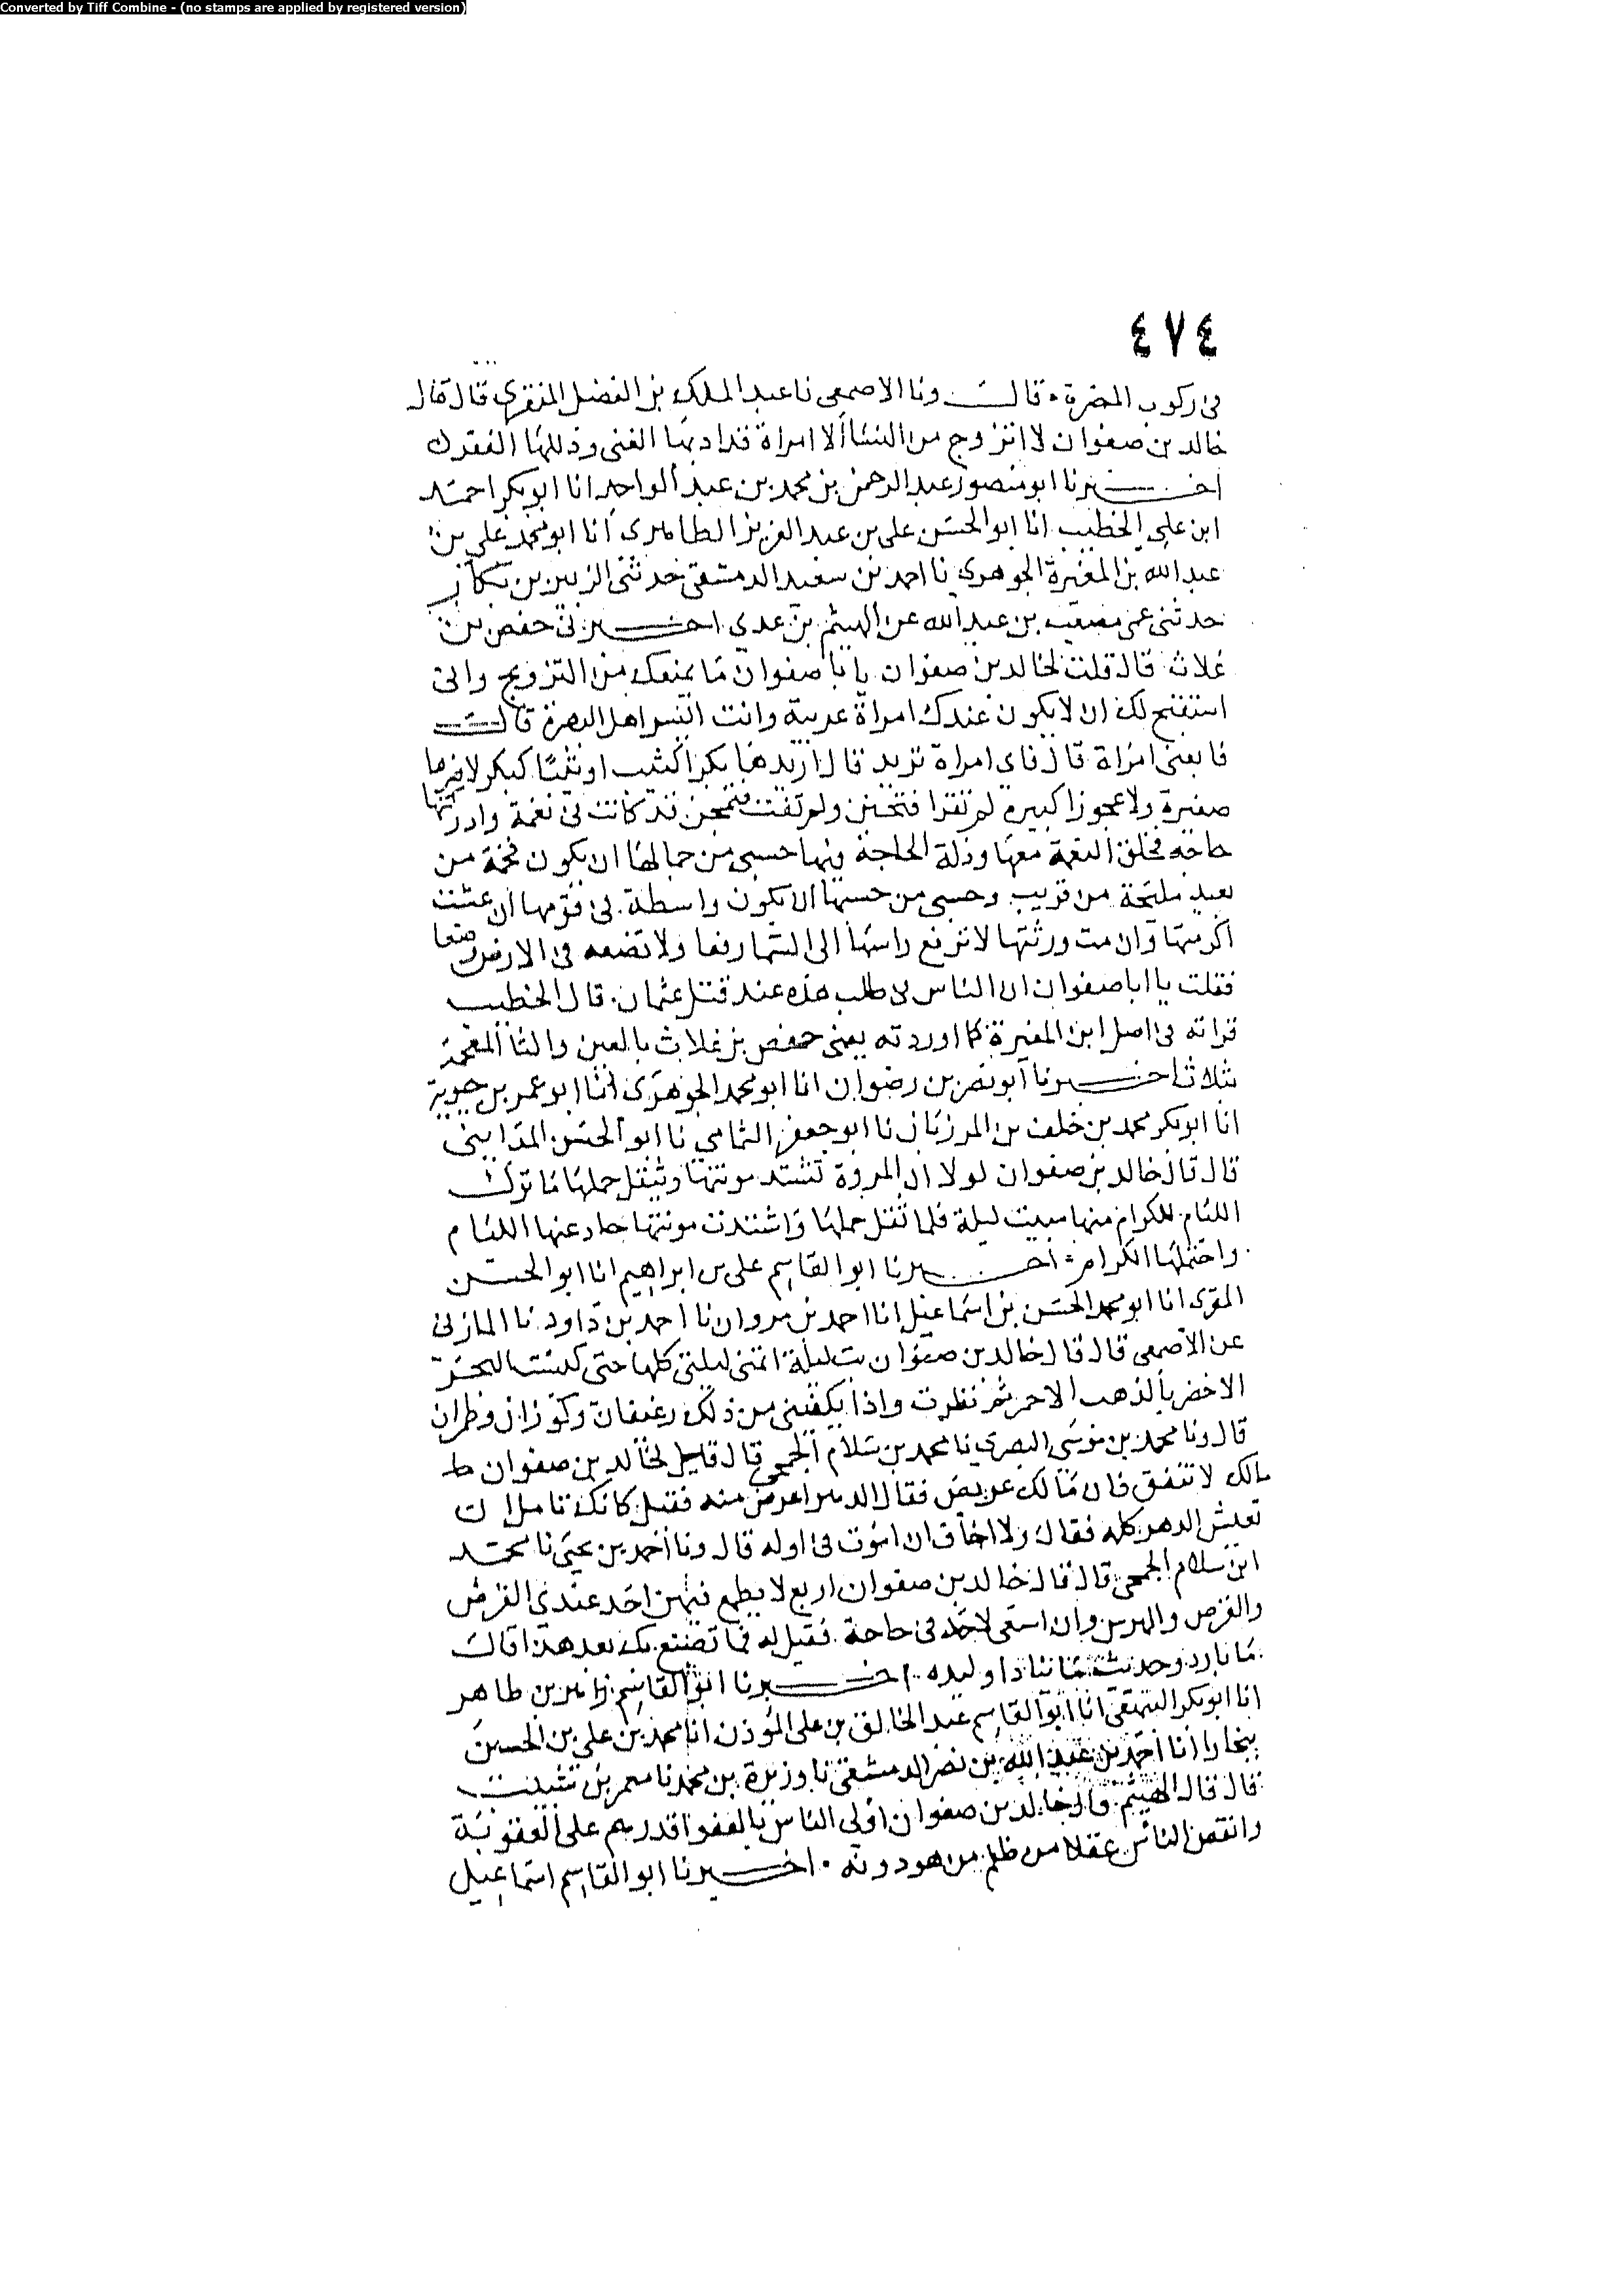 Converted by Tiff Combine - (no stamps are applied by registered version)
٤٧٤
في ركوب المضرة ٠ قالـــ ونا الاصمعي نا عبد الملك بن الفضل المنقري قال قال
خالد بن صفوان لا اتزوج من النسا الا امراة قد ادبها الغنى وذللها الفقر
اخــبرنا ابو منصور عبد الرحمن بن محمد بن عبد الواحد انا ابو بكر احمد
ابن علي الخطيب انا ابو الحسن علي بن عبد العزيز الطاهري انا ابو محمد علي بن
عبد الله بن المغيرة الجوهري نا احمد بن سعيد الدمشقي حدثني الزبير بن بكار
حدثني عمي مصعب بن عبد الله عن الهيثم بن عدي اخــبرني حفص بن
غلاث قال قلت لخالد بن صفوان يا با صفوان ما يمنعك من التزويج واني
استقبح لك ان لا يكون عندك امراة عربية وانت ايسر اهل البصرة قالــ
فابغني امراة قال فاي امراة تريد قال اريدها بكرا كثيب او ثيبا كبكر لا ضرعا
صغيرة ولا عجوزا كبيرة لم تقرا فتحنن ولم تفت فتمجن قد كانت في نعمة وادركتها
حاجة فخلق النعمة معها وذلة الحاجة فيها حسبي من جمالها ان يكون فخمة من
بعيد مليحة من قريب وحسبي من حسبها ان تكون واسطة في قومها ان عشت
اكرمتها وان مت ورثتها لا ترفع راسها الى السما رفعا ولا تضعه في الارض وضعا
فقلت يا ابا صفوان ان الناس في طلب هذه عند قتل عثمان . قال الخطيب
قراته في اصل ابن المغيرة كما اوردته يعني حفص بن غلاث بالغين والثا المعجمة
بثلاث اخــبرنا ابو نصر بن رضوان انا ابو محمد الجوهري انا ابو عمر بن حيوية
انا ابو بكر محمد بن خلف بن المرزبان نا ابو جعفر الشامي نا ابو الحسن المدايني
قال قال خالد بن صفوان لولا ان المروة تشتد مونتها ويثقل حملها ما ترك
اللئام للكرام منها مبيت ليلة فلما ثقل حملها واشتدت مونتها حاد عنها اللئام
واحتملها الكرام اخــبرنا ابو القاسم علي بن ابراهيم انا ابو الحسن
المقرى انا ابو محمد الحسن بن اسماعيل انا احمد بن مروان نا احمد بن داود نا المازني
عن الاصمعي قال قال خالد بن صفوان بت ليلة اتمنى ليلتي كلها حتى كبست البحر
الاخضر بالذهب الاحمر ثم نظرت واذا يكفيني من ذلك رغيفان وكوزان وطمران
قال ونا محمد بن موسى البصري نا محمد بن سلام الجمحي قال قيل لخالد بن صفوان ما
مالك لا تنفق فان مالك عريض فقال الدهر اعرض منه فقيل كانك تامل ان
تعيش الدهر كله فقال ولا اخاف ان اموت في اوله قال ونا احمد بن يحيى نا محمد
ابن سلام الجمحي قال قال خالد بن صفوان اربع لا يطمع فيهن احد عندي القرض
والفرض والهرس وان اسعى لاحد في حاجة . فقيل له فما تصنع بك بعد هذا قال
ما بارد وحديث ما ينادا وليده ٠ اخــبرنا ابو القاسم زاهر بن طاهر
انا ابو بكر البيهقي انا ابو القاسم عبد الخالق بن علي المؤذن انا محمد بن علي بن الحسين
ببخارا انا احمد بن عبد الله بن نصر الدمشقي نا وزيرة بن محمد نا معمر بن شبيب
قال قال الهيثم قال خالد بن صفوان اولى الناس بالعفو اقدرهم على العقوبة
وانقص الناس عقلا من ظلم من هو دونه ٠ اخــبرنا ابو القاسم اسماعيل